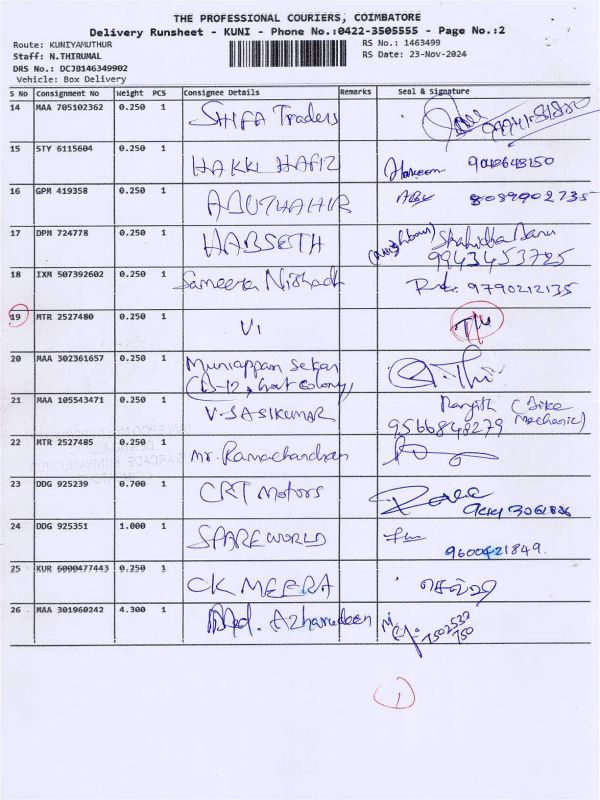 THE PROFESSIONAL COURIERS, COIMBATORE
Delivery Runsheet - KUNI - Phone No.:0422-3505555 - Page No.:2
Route: KUNIYAMUTHUR RS No.: 1463499
Staff: N.THIRUMAL RS Date: 23-Nov-2024
DRS No.: DCJB146349902
Vehicle: Box Delivery
S No Consignment No Weight PCS Consignee Details Remarks Seal & Signature
14 MAA 705102362 0.250 1 SHIFA Traders
15 STY 6115604 0.250 1 HAKKI HAFIZ Hakeem 9042648150
16 GPM 419358 0.250 1 ABUTHAHIR Abu 8089902735
17 DPM 724778 0.250 1 HABSETH (neighbour) Shahidha Banu
9943453725
18 IXM 507392602 0.250 1 Sameera Nishadh 9790212135
19 MTR 2527480 0.250 1 VI
20 MAA 302361657 0.250 1 Muniappan Sekar
(B-12, Govt Colony)
21 MAA 105543471 0.250 1 V.SASIKUMAR Ranjith (Bike Mechanic)
9566848279
22 MTR 2527485 0.250 1 Mr. Ramachandran
23 DDG 925239 0.700 1 CRT Motors
24 DDG 925351 1.000 1 SPAREWORLD
9600421849.
25 KUR 6000477443 0.250 1 CK MEERA செல்வி
26 MAA 301960242 4.300 1 Md. Azharudeen
7502532
750
1